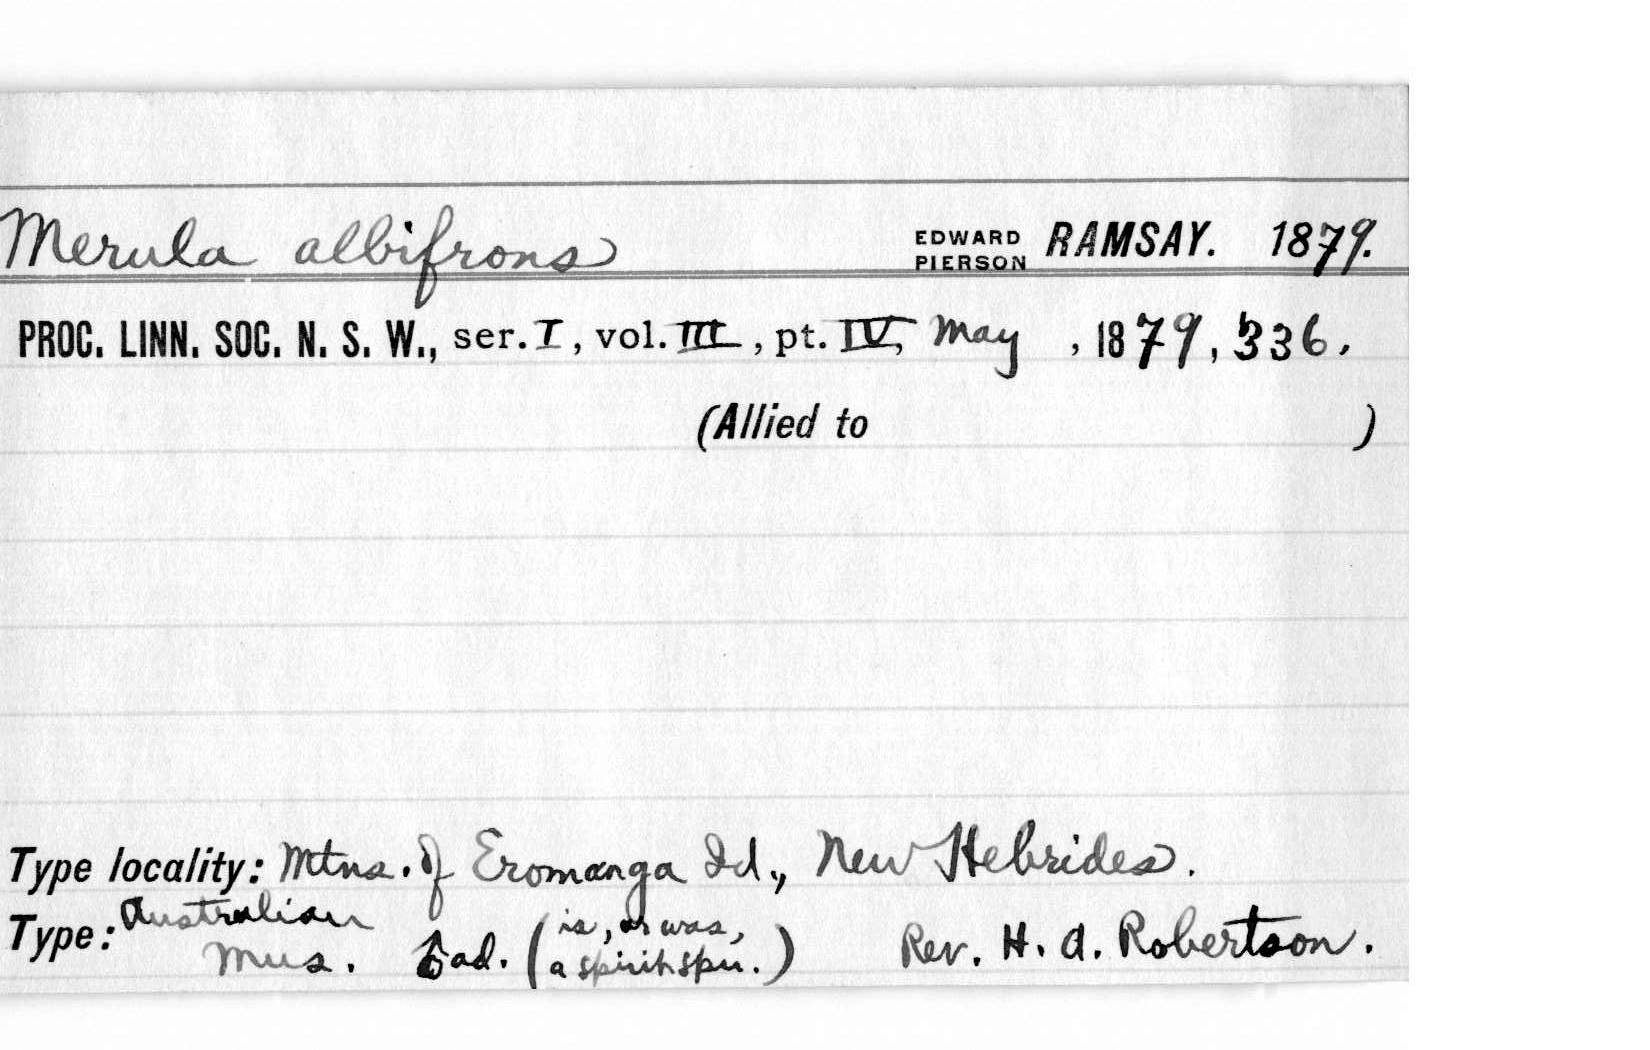 Merula albifrons EDWARD PIERSON RAMSAY. 1879.
PROC. LINN. SOC. N. S. W., ser. I, vol. III, pt. IV, May, 1879, 336.
(Allied to )
Type locality: Mtns. of Eromanga Id., New Hebrides.
Type: Australian Mus. ♂ ad. (is, or was, a spirit spm.) Rev. H. A. Robertson.